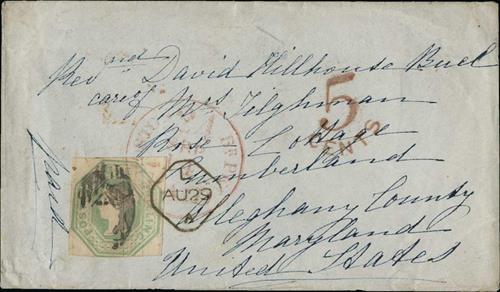 Revd David Hillhouse Buel
care of Mrs Tilghman
Rose Cottage
Cumberland
Alleghany County
Maryland
United States
paid
5
CENTS
AU29
POSTAGE